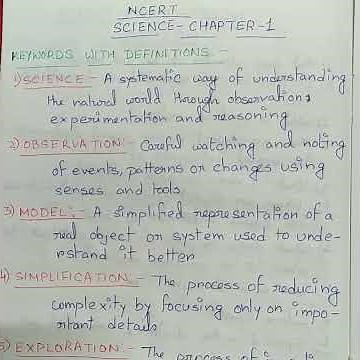 NCERT
SCIENCE - CHAPTER-1
KEYWORDS WITH DEFINITIONS :-
1) SCIENCE:- A systematic way of understanding
the natural world through observation,
experimentation and reasoning
2) OBSERVATION:- Careful watching and noting
of events, patterns or changes using
senses and tools
3) MODEL:- A simplified representation of a
real object or system used to unde-
rstand it better
4) SIMPLIFICATION:- The process of reducing
complexity by focusing only on impo-
rtant details
5) EXPLORATION:- The process of